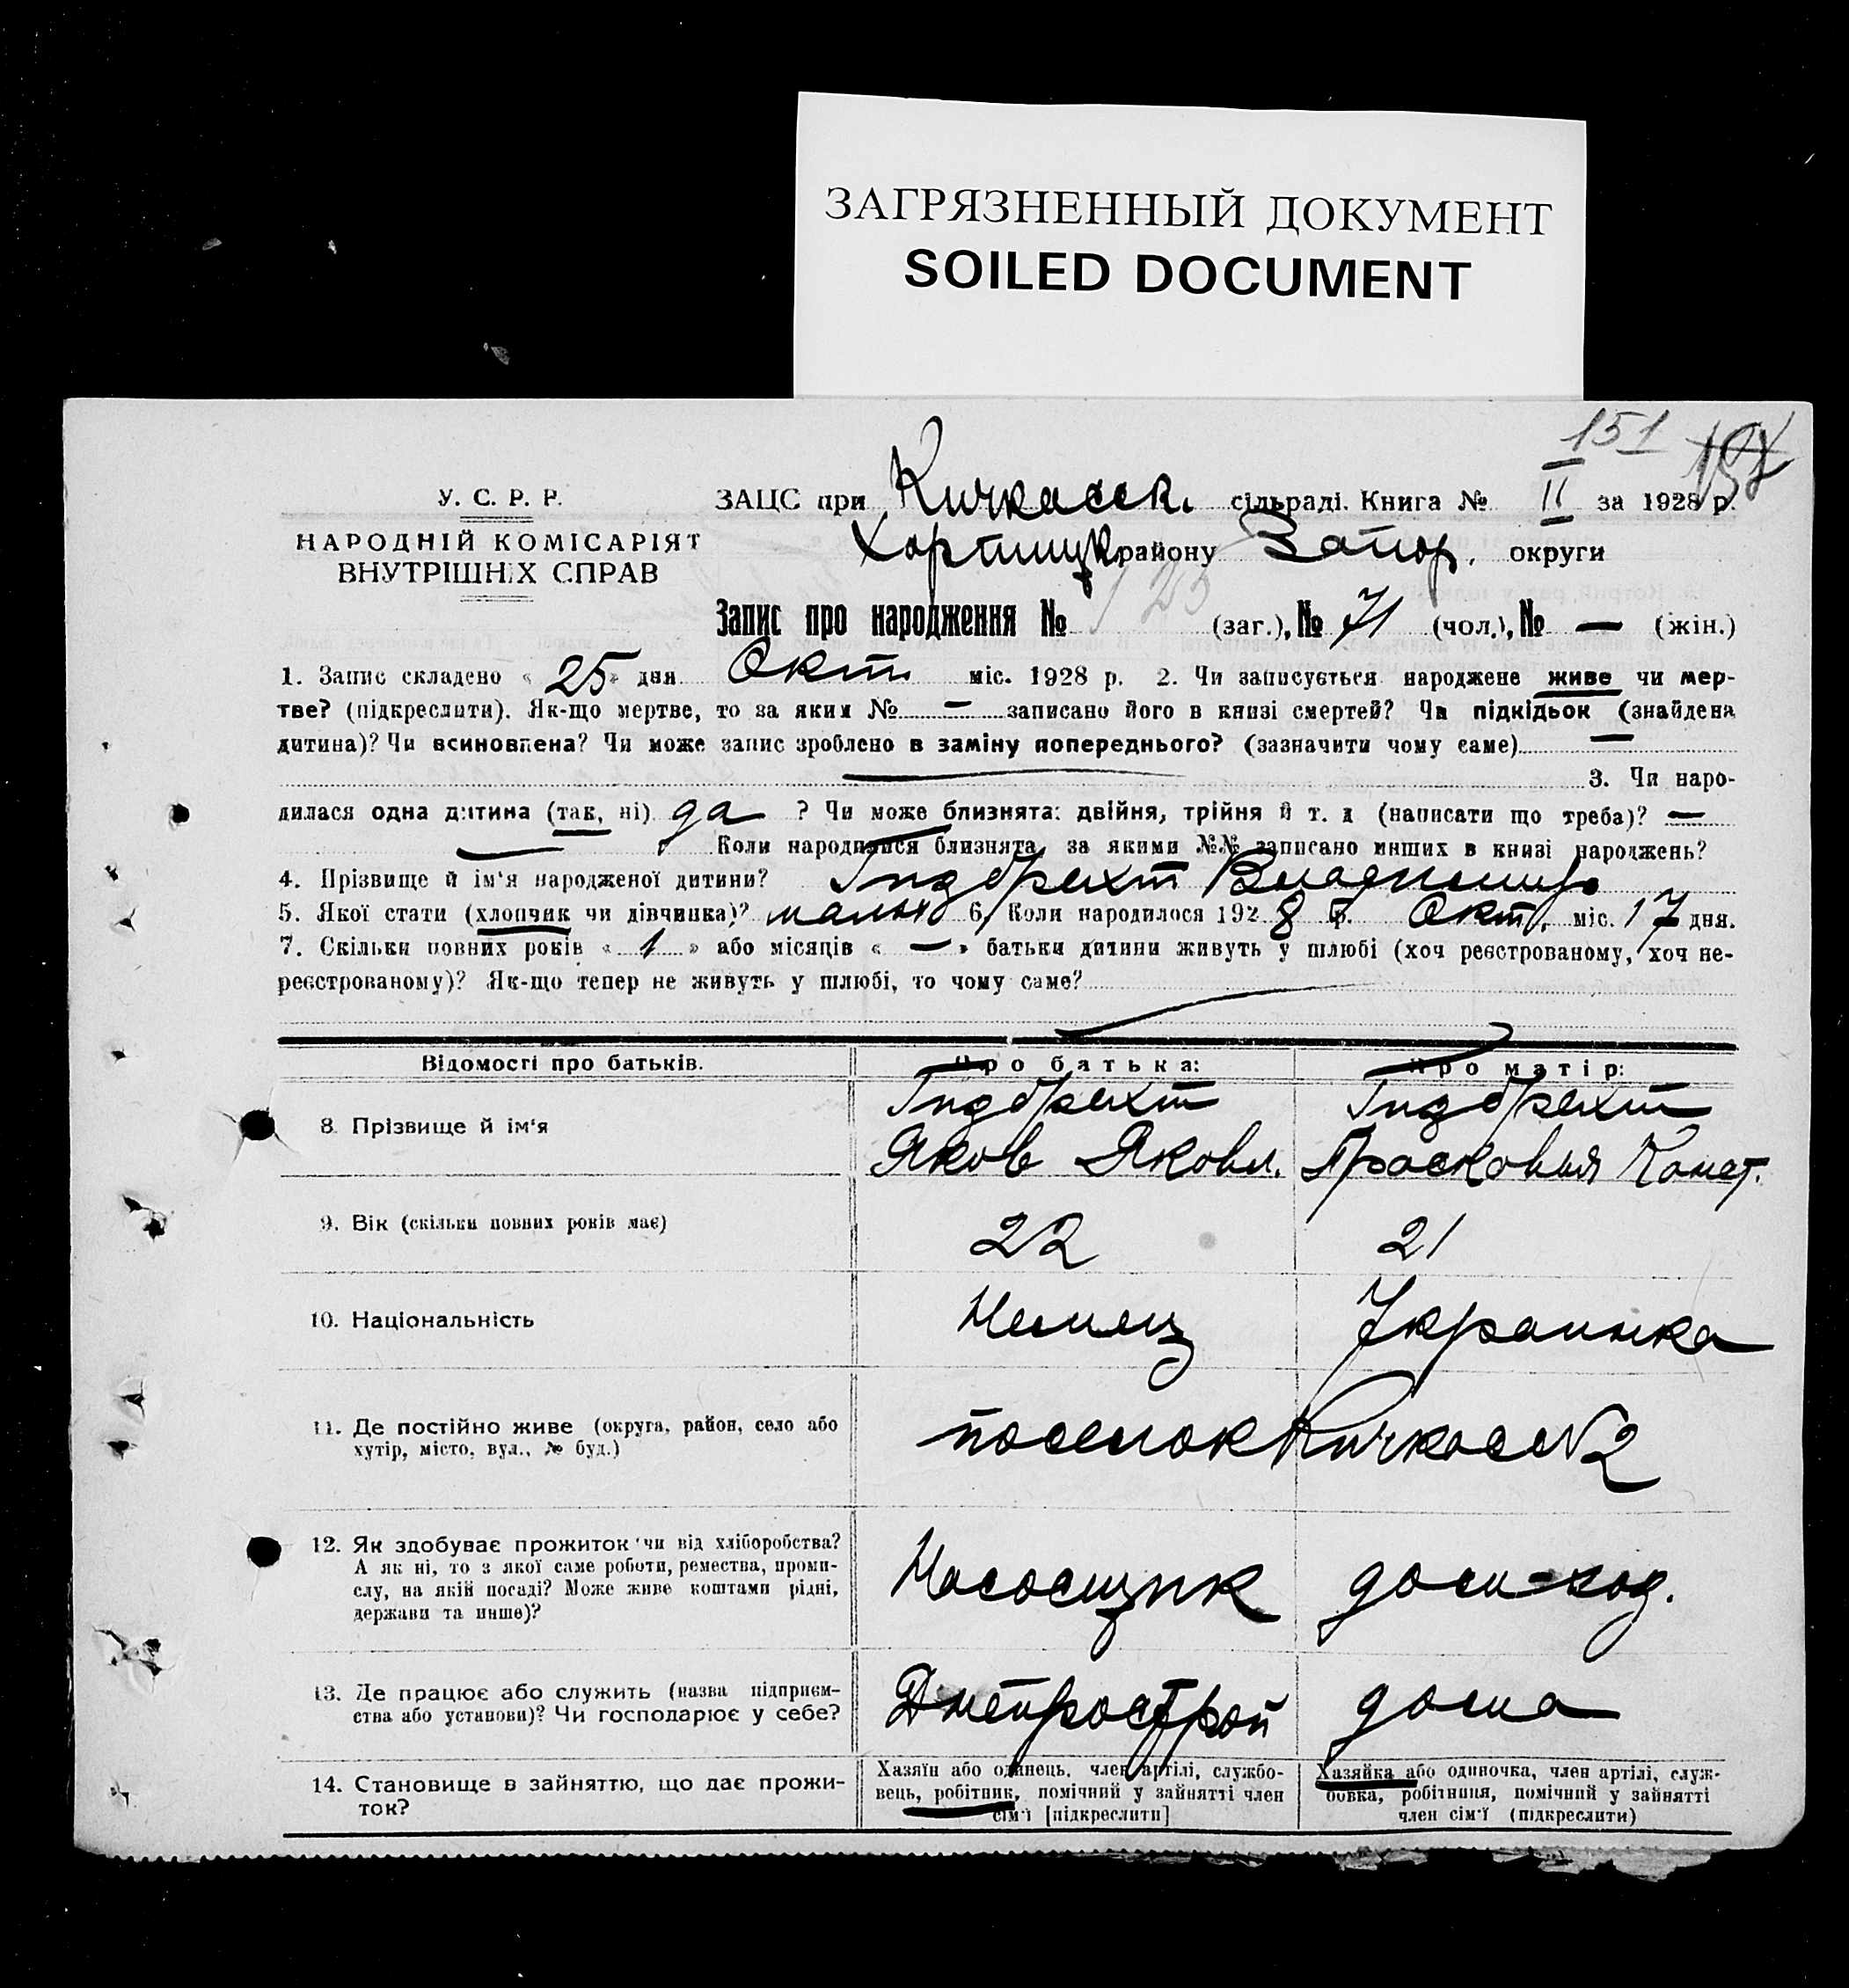 ЗАГРЯЗНЕННЫЙ ДОКУМЕНТ
SOILED DOCUMENT
151
У. С. Р. Р.
НАРОДНІЙ КОМІСАРІЯТ
ВНУТРІШНІХ СПРАВ
ЗАЦС при Кичкасск. сільраді. Книга № II за 1928 р.
Хортицк. району Запор. округи
Запис про народження № 125 (заг.), № 71 (чол.), № — (жін.)
1. Запис складено « 25 » дня Окт. міс. 1928 р. 2. Чи записується народжене живе чи мер-
тве? (підкреслити). Як-що мертве, то за яким № — записано його в книзі смертей? Чи підкідьок (знайдена
дитина)? Чи всиновлена? Чи може запис зроблено в заміну попереднього? (зазначити чому саме) —
3. Чи наро-
дилася одна дитина (так, ні) да ? Чи може близнята: двійня, трійня й т. д (написати що треба)? —
Коли народилися близнята, за якими №№ записано инших в книзі народжень?
4. Прізвище й ім'я народженої дитини? Гидбрехт Владимир
5. Якої стати (хлопчик чи дівчинка)? мальч 6. Коли народилося 1928 р. Окт. міс. 17 дня.
7. Скільки повних років « 1 » або місяців « — » батьки дитини живуть у шлюбі (хоч реєстрованому, хоч не-
реєстрованому)? Як-що тепер не живуть у шлюбі, то чому саме?
Відомості про батьків.
Про батька:
Про матір:
8. Прізвище й ім'я
Гидбрехт
Яков Яковл.
Гидбрехт
Прасковия Конст.
9. Вік (скільки повних років має)
22
21
10. Національність
Немец
Украинка
11. Де постійно живе (округа, район, село або
хутір, місто, вул., № буд.)
поселок Кичкас N2
12. Як здобуває прожиток чи від хліборобства?
А як ні, то з якої саме роботи, ремества, проми-
слу, на якій посаді? Може живе коштами рідні,
держави та инше)?
Насосщик
дом-хоз.
13. Де працює або служить (назва підприєм-
ства або установи)? Чи господарює у себе?
Днепрострой
дома
14. Становище в зайняттю, що дає прожи-
ток?
Хазяїн або одинець, член артілі, службо-
вець, робітник, помічний у зайнятті член
сім'ї [підкреслити]
Хазяйка або одиночка, член артілі, служ-
бовка, робітниця, помічний у зайнятті
член сім'ї (підкреслити)